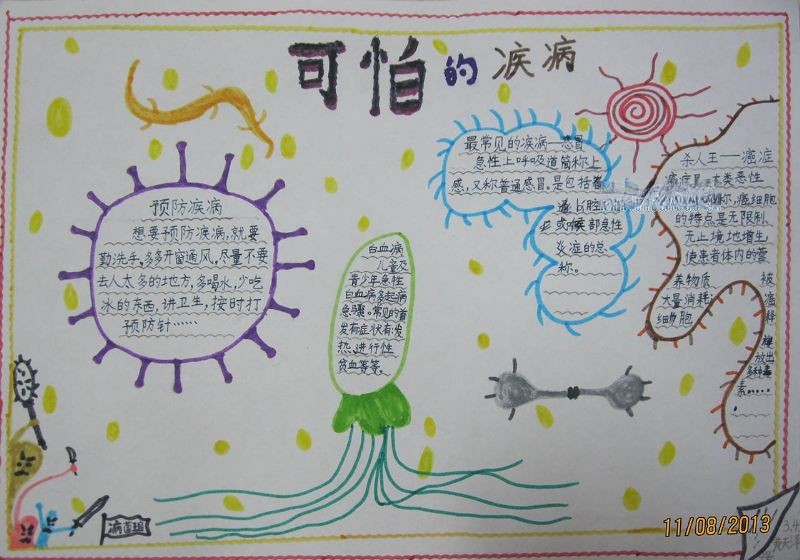 可怕的疾病
预防疾病
想要预防疾病,就要
勤洗手,多多开窗通风,尽量不要
去人太多的地方,多喝水,少吃
冰的东西,讲卫生,按时打
预防针……
白血病
儿童及
青少年急性
白血病多起病
急骤。常见的首
发有症状有:发
热、进行性
贫血等等。
最常见的疾病—感冒
急性上呼吸道简称上
感,又称普通感冒。是包括
腔
或喉部急性
炎症的总
称。
杀人王——癌症
恶性
称,癌细胞
的特点是无限制、
无止境地增生,
使患者体内的营
养物质 被
大量消耗; 癌
细胞 释
放出
多种毒
素……
。
11/08/2013
3.4